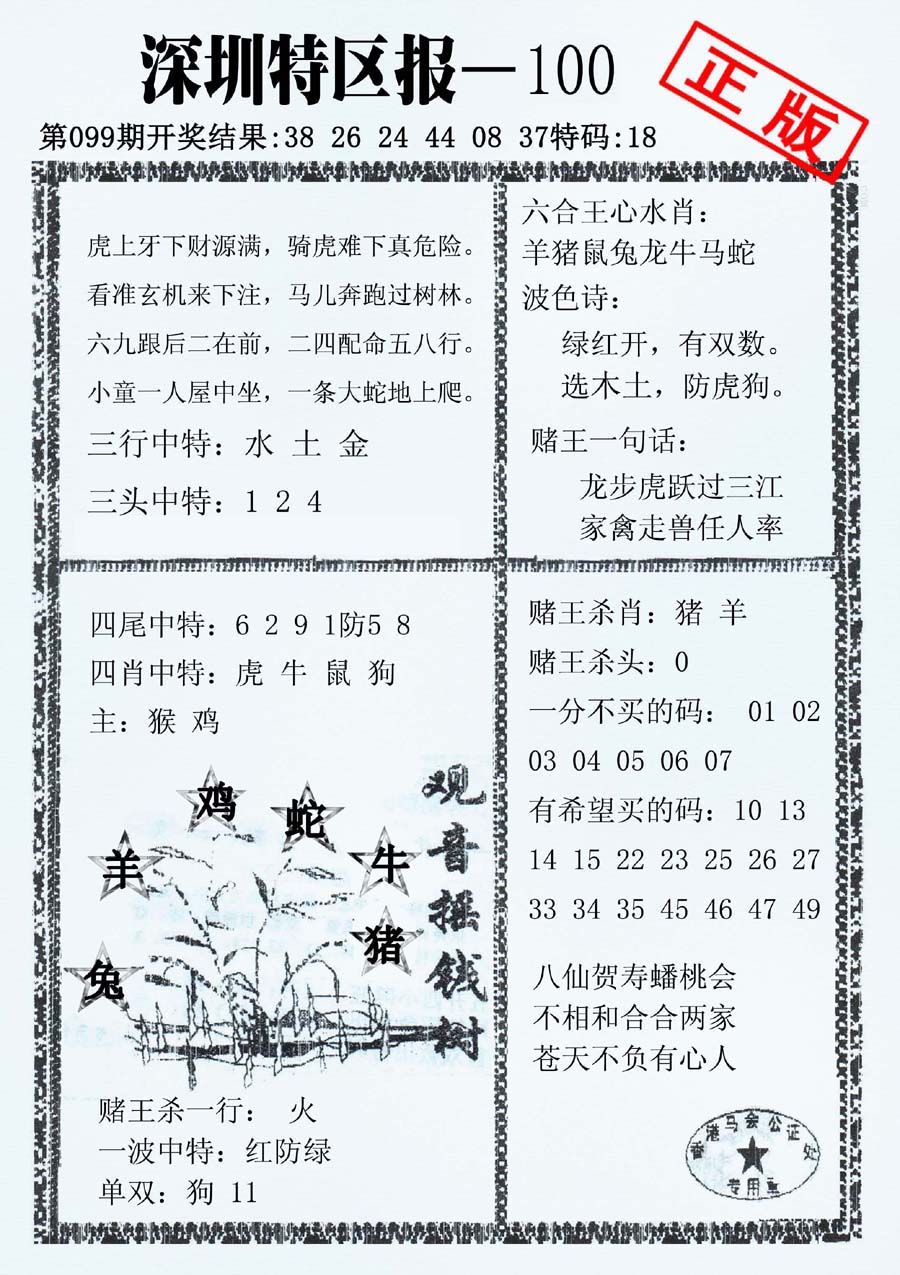 深圳特区报—100
正版
第099期开奖结果:38 26 24 44 08 37特码:18
虎上牙下财源满，骑虎难下真危险。
看准玄机来下注，马儿奔跑过树林。
六九跟后二在前，二四配命五八行。
小童一人屋中坐，一条大蛇地上爬。
三行中特：水 土 金
三头中特：1 2 4
六合王心水肖：
羊猪鼠兔龙牛马蛇
波色诗：
绿红开，有双数。
选木土，防虎狗。
赌王一句话：
龙步虎跃过三江
家禽走兽任人率
四尾中特：6 2 9 1防5 8
四肖中特：虎 牛 鼠 狗
主：猴 鸡
鸡
蛇
羊
牛
猪
兔
观音摇钱树
赌王杀一行： 火
一波中特：红防绿
单双：狗 11
赌王杀肖：猪 羊
赌王杀头：0
一分不买的码： 01 02
03 04 05 06 07
有希望买的码：10 13
14 15 22 23 25 26 27
33 34 35 45 46 47 49
八仙贺寿蟠桃会
不相和合合两家
苍天不负有心人
香港马会公证处
专用章